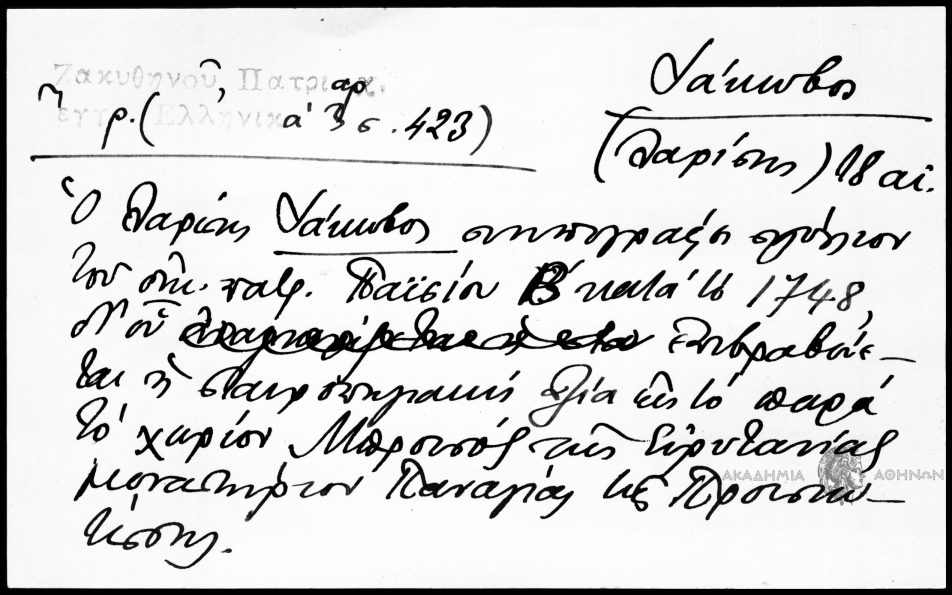 Ζακυθηνοῦ, Πατριαρχ.
ἔγγρ. (Ἑλληνικά 3 σ. 423)
Ἰάκωβος
(Λαρίσης) 18 αἰ.
Ὁ Λαρίσης Ἰάκωβος συνυπογράφει σιγίλλιον
τοῦ οἰκ. πατρ. Παϊσίου Β' κατά τό 1748,
δι' οὗ ἐπιβραβεύε-
ται ἡ σταυροπηγιακή ἀξία εἰς τό παρά
τό χωρίον Μπρουσός τῆς Εὐρυτανίας
μοναστήριον Παναγίας τῆς Προυσιω-
τίσσης.
ΑΚΑΔΗΜΙΑ ΑΘΗΝΩΝ